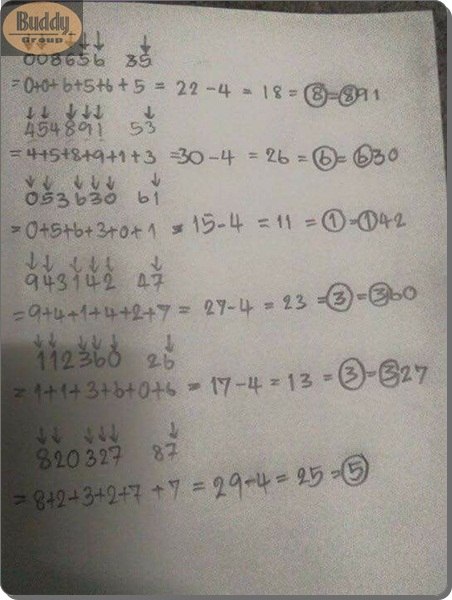 Buddy
Group
008656 35
=0+0+6+5+6+5 = 22-4 = 18 = 8 = 891
454891 53
=4+5+8+9+1+3 =30-4 = 26 = 6 = 630
053630 61
=0+5+6+3+0+1 = 15-4 = 11 = 1 = 142
943142 47
=9+4+1+4+2+7 = 27-4 = 23 = 3 = 360
112360 26
=1+1+3+6+0+6 = 17-4 = 13 = 3 = 327
820327 87
=8+2+3+2+7+7 = 29-4 = 25 = 5